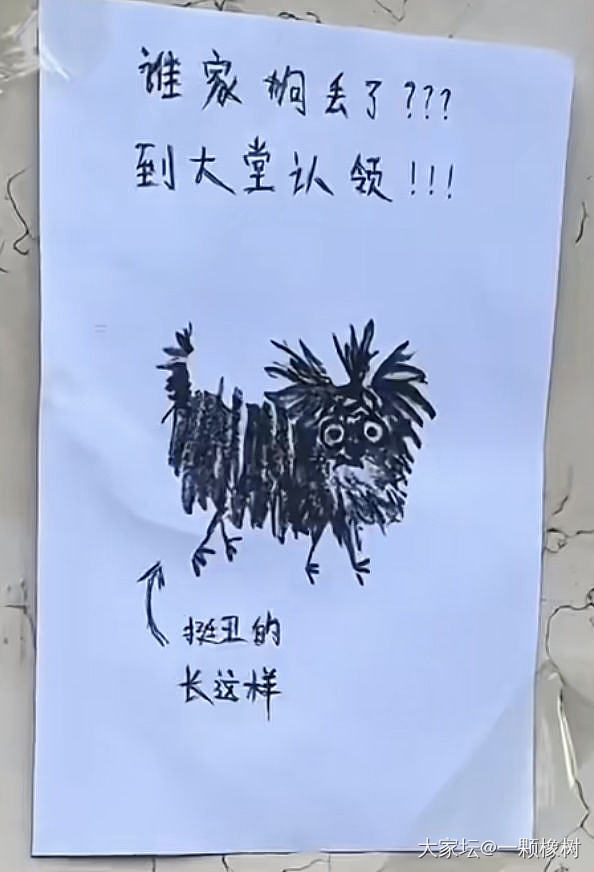 谁家狗丢了???
到大堂认领!!!
挺丑的
长这样
大家坛@一颗橡树